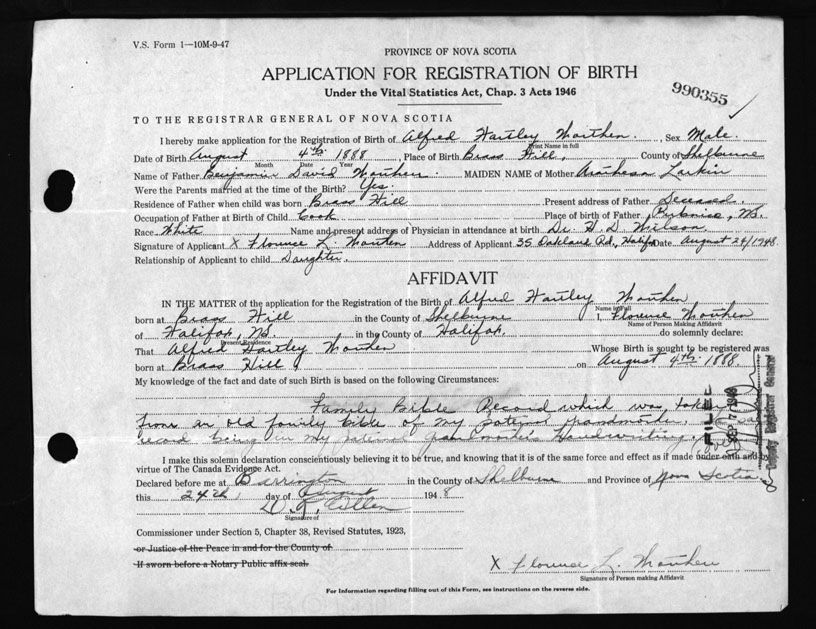 V.S. Form 1—10M-9-47
PROVINCE OF NOVA SCOTIA
APPLICATION FOR REGISTRATION OF BIRTH
Under the Vital Statistics Act, Chap. 3 Acts 1946
990355
TO THE REGISTRAR GENERAL OF NOVA SCOTIA
I hereby make application for the Registration of Birth of Alfred Hartley Worthen. Sex Male.
Print Name in full
Date of Birth August 4th. 1888, Place of Birth Brass Hill, County of Shelburne
Month Date Year
Name of Father Benjamin David Worthen. MAIDEN NAME of Mother Larkin
Were the Parents married at the time of the Birth? Yes.
Residence of Father when child was born Brass Hill Present address of Father Deceased.
Occupation of Father at Birth of Child Cook Place of birth of Father
Race White Name and present address of Physician in attendance at birth Dr. H. D. Wilson
Signature of Applicant X Florence L. Worthen Address of Applicant 35 Oakland Rd., Halifax Date August 24/1948.
Relationship of Applicant to child Daughter.
AFFIDAVIT
IN THE MATTER of the application for the Registration of the Birth of Alfred Hartley Worthen
Name in full
born at Brass Hill in the County of Shelburne I, Florence Worthen
Name of Person Making Affidavit
of Halifax, N.S. in the County of Halifax. do solemnly declare:
Present Residence
That Alfred Hartley Worthen Whose Birth is sought to be registered was
born at Brass Hill, on August 4th. 1888.
My knowledge of the fact and date of such Birth is based on the following Circumstances:
Family Bible Record which was taken
from an old family bible of my paternal grandmother,
record being in my grandmothers handwriting.
FILED
SEP 7 1948
Deputy Registrar General
I make this solemn declaration conscientiously believing it to be true, and knowing that it is of the same force and effect as if made under oath and by
virtue of The Canada Evidence Act.
Declared before me at Barrington in the County of Shelburne and Province of Nova Scotia
this 24th, day of August 1948
Signature of
Commissioner under Section 5, Chapter 38, Revised Statutes, 1923,
or Justice of the Peace in and for the County of
If sworn before a Notary Public affix seal.
X Florence L. Worthen
Signature of Person making Affidavit
For Information regarding filling out of this Form, see instructions on the reverse side.